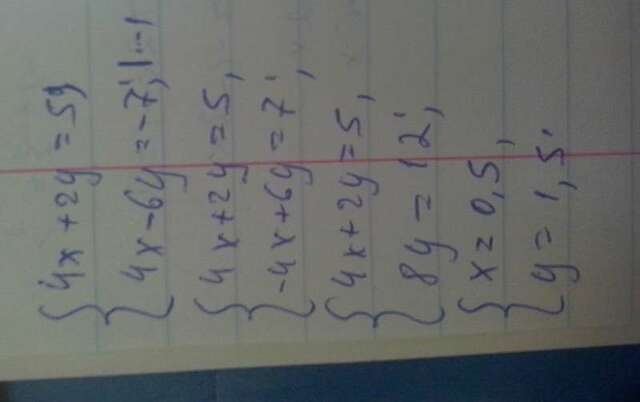 4x + 2y = 5,
4x - 6y = -7, | · -1
4x + 2y = 5,
-4x + 6y = 7,
4x + 2y = 5,
8y = 12,
x = 0,5,
y = 1,5.